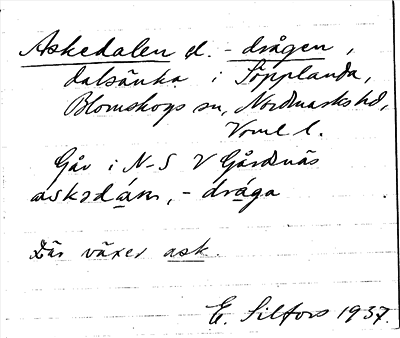 Askedalen el. -drågen,
dalsänka i Töpplanda,
Blomskogs sn, Nordmarks hd,
Vrml l.
Går i N-S V Gårdnäs
askədán, -drága
Där växer ask.
E. Silfors 1937.